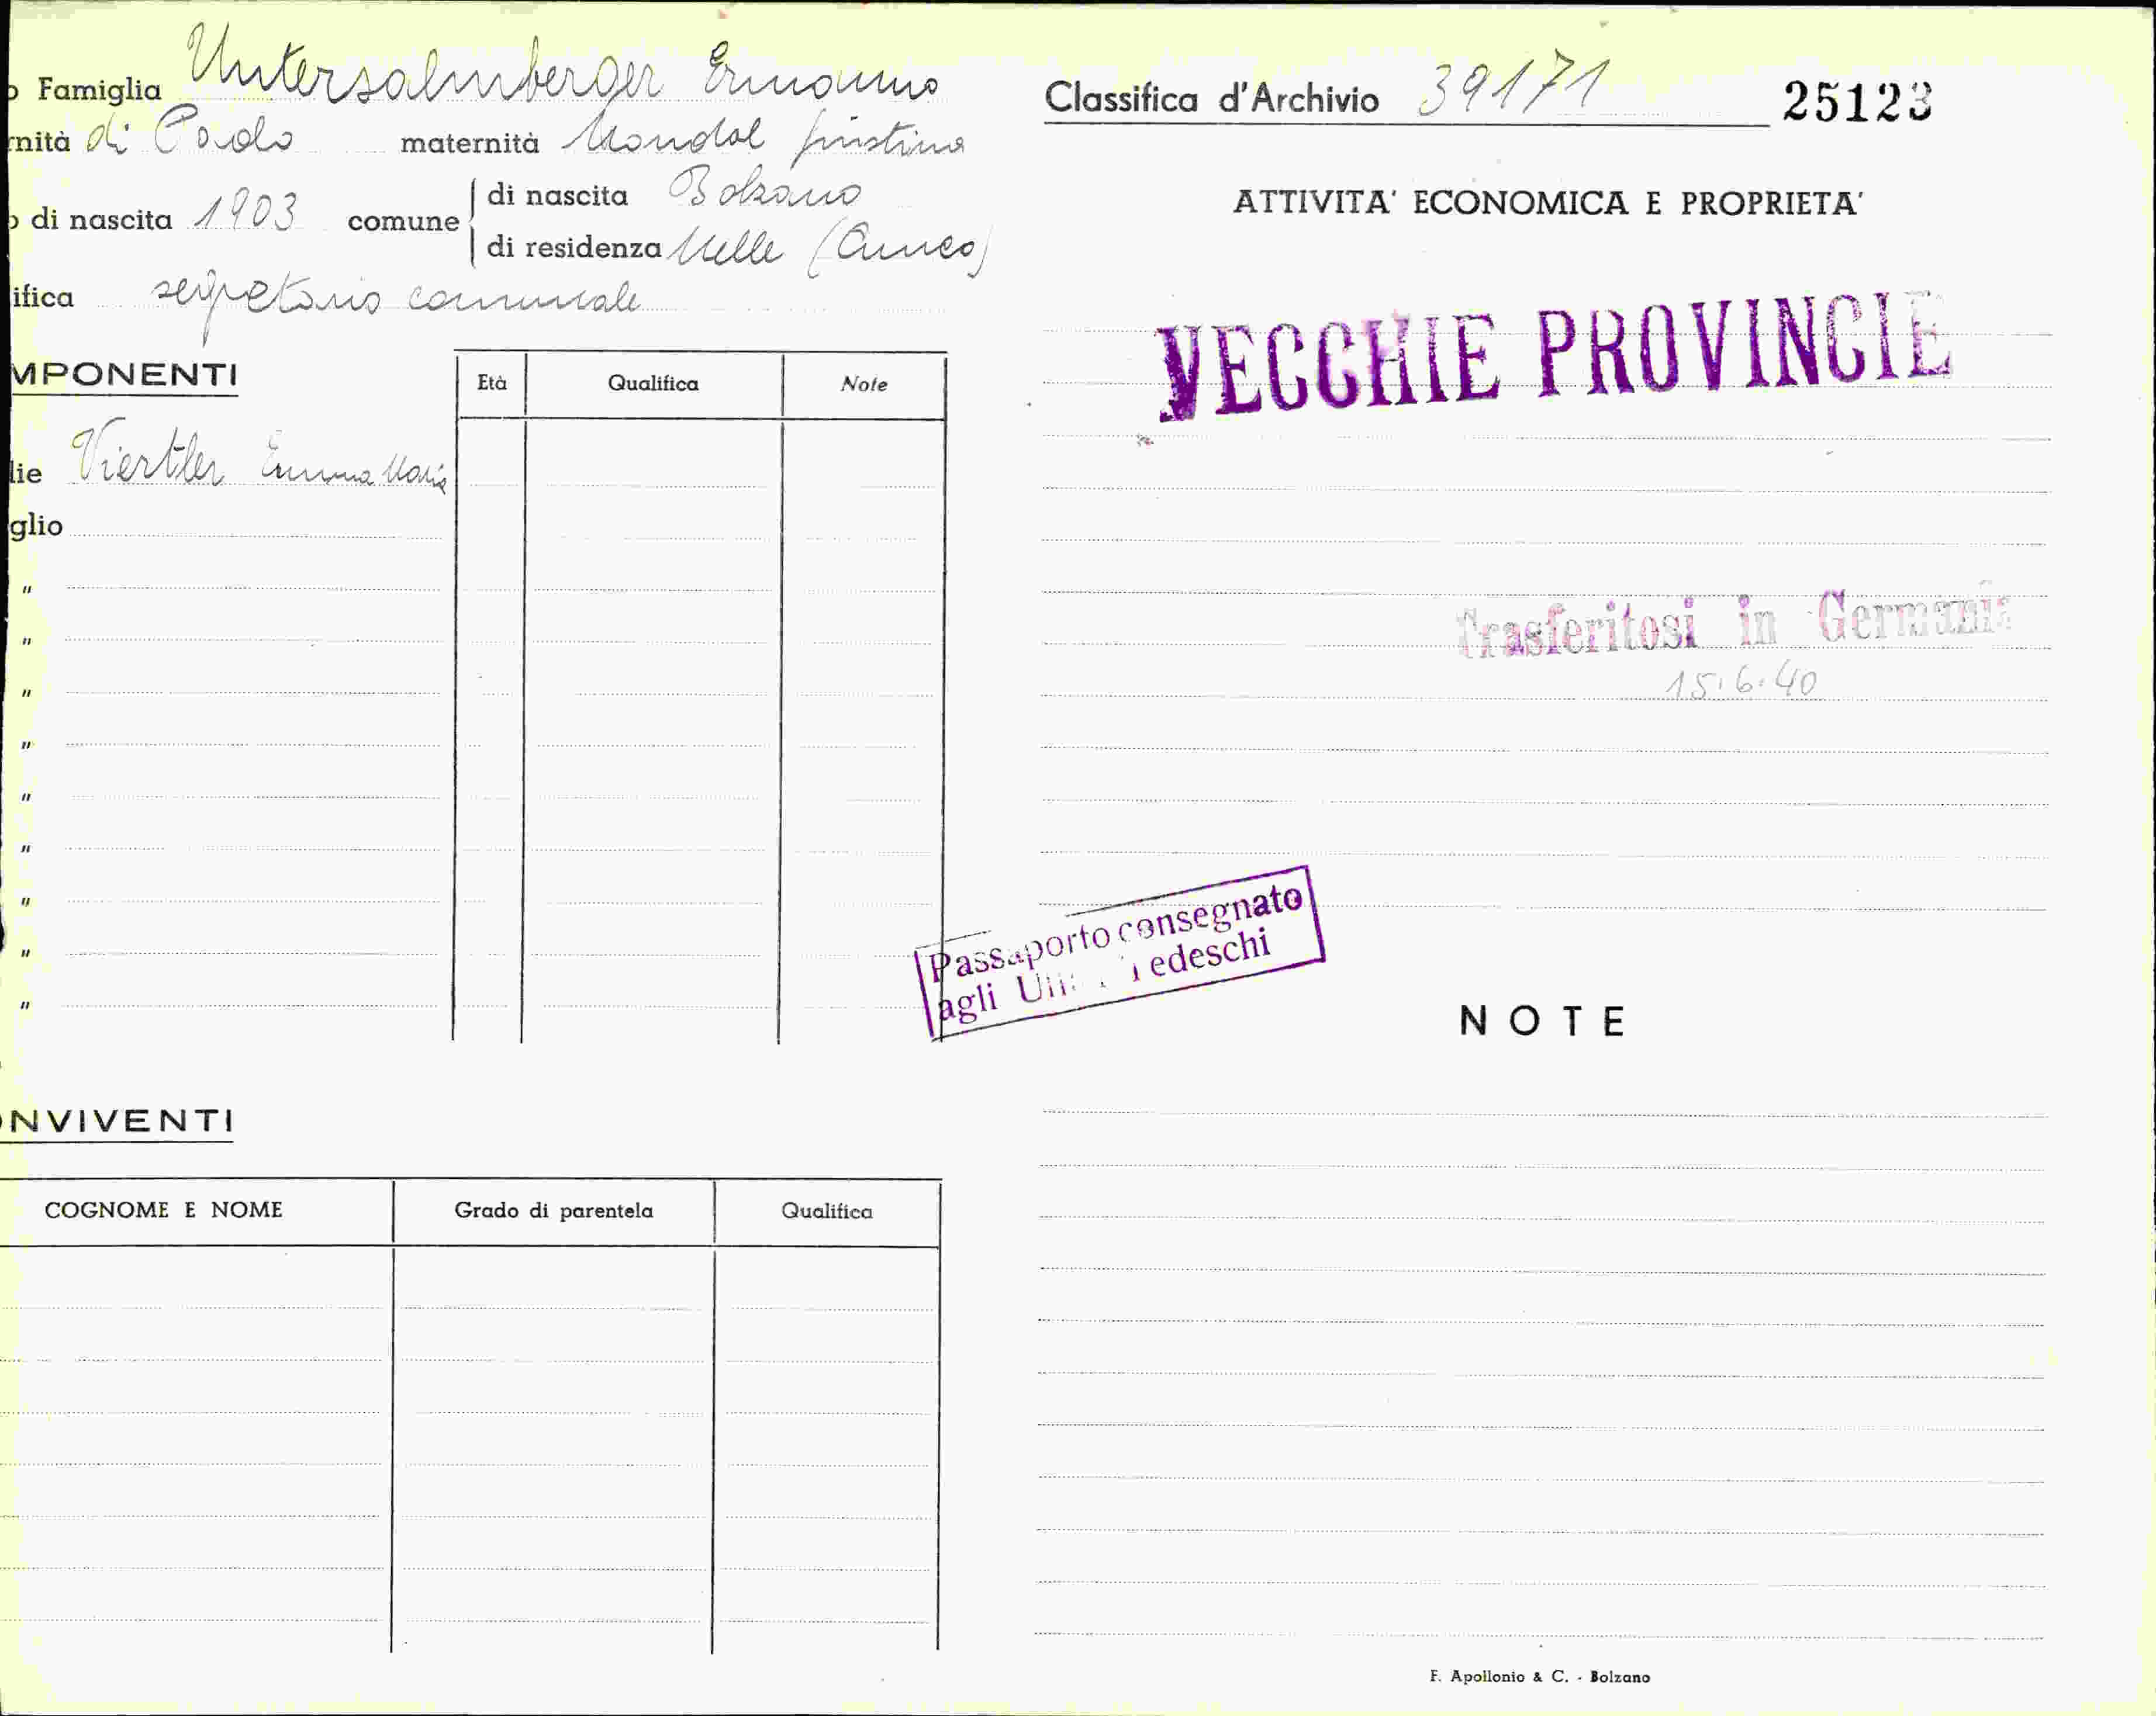 Famiglia Untersalmberger Ermanno
nità di Paolo maternità Mondal Giustina
di nascita 1903 comune di nascita Bolzano
di residenza Melle (Cuneo)
ifica segretario comunale
MPONENTI
Età Qualifica Note
lie Viertler Emma Maria
glio
"
"
"
"
"
"
"
"
"
NVIVENTI
COGNOME E NOME Grado di parentela Qualifica
Classifica d'Archivio 39171 25123
ATTIVITA' ECONOMICA E PROPRIETA'
VECCHIE PROVINCIE
Trasferitosi in Germania
15.6.40
Passaporto consegnato
agli Tedeschi
NOTE
F. Apollonio & C. - Bolzano